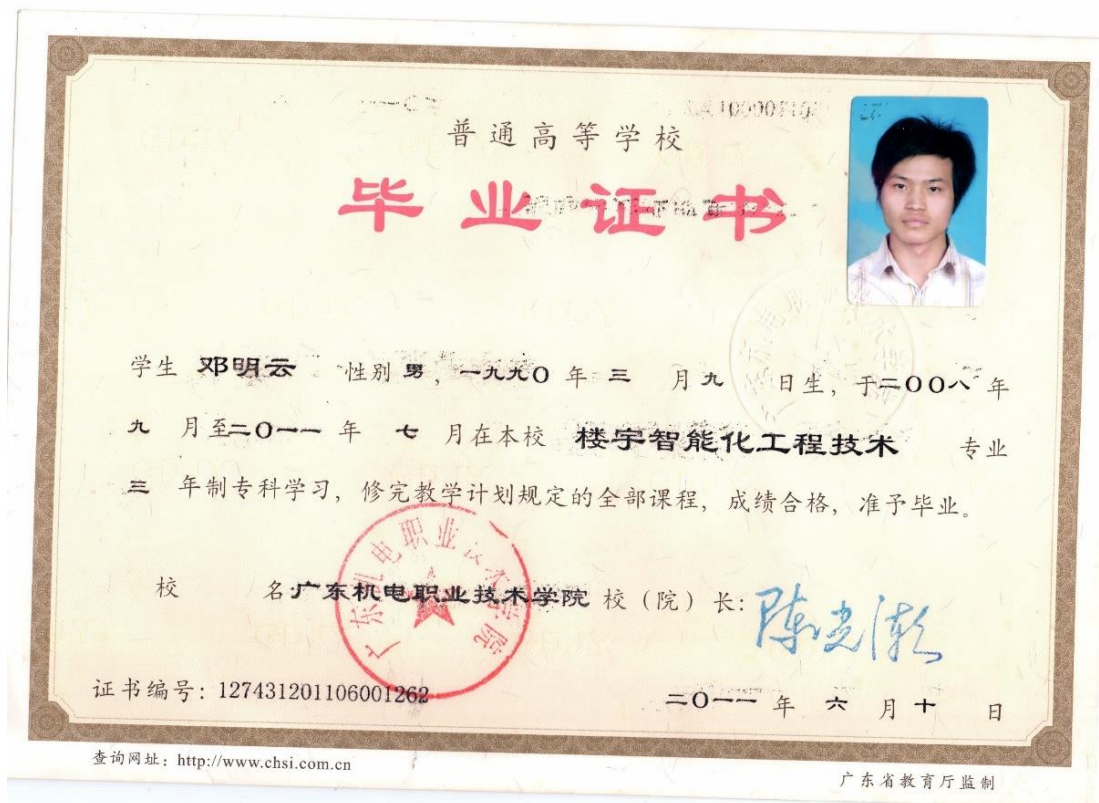 普通高等学校
毕业证书
学生 邓明云 性别 男，一九九〇 年 三 月 九 日生，于二〇〇八 年
九 月至二〇一一 年 七 月在本校 楼宇智能化工程技术 专业
三 年制专科学习，修完教学计划规定的全部课程，成绩合格，准予毕业。
广东机电职业技术学院
校 名：广东机电职业技术学院 校（院）长：
证书编号：127431201106001262
二〇一一 年 六 月 十 日
查询网址：http://www.chsi.com.cn
广东省教育厅监制